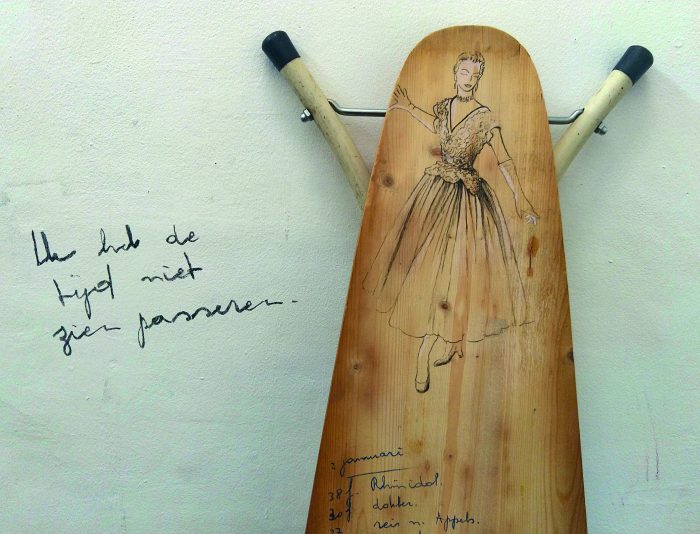 Ik heb de
tijd niet
zien passeren.
2 januari
38 f. Rhinidol.
30 f dokter.
27 reis n. Appels.